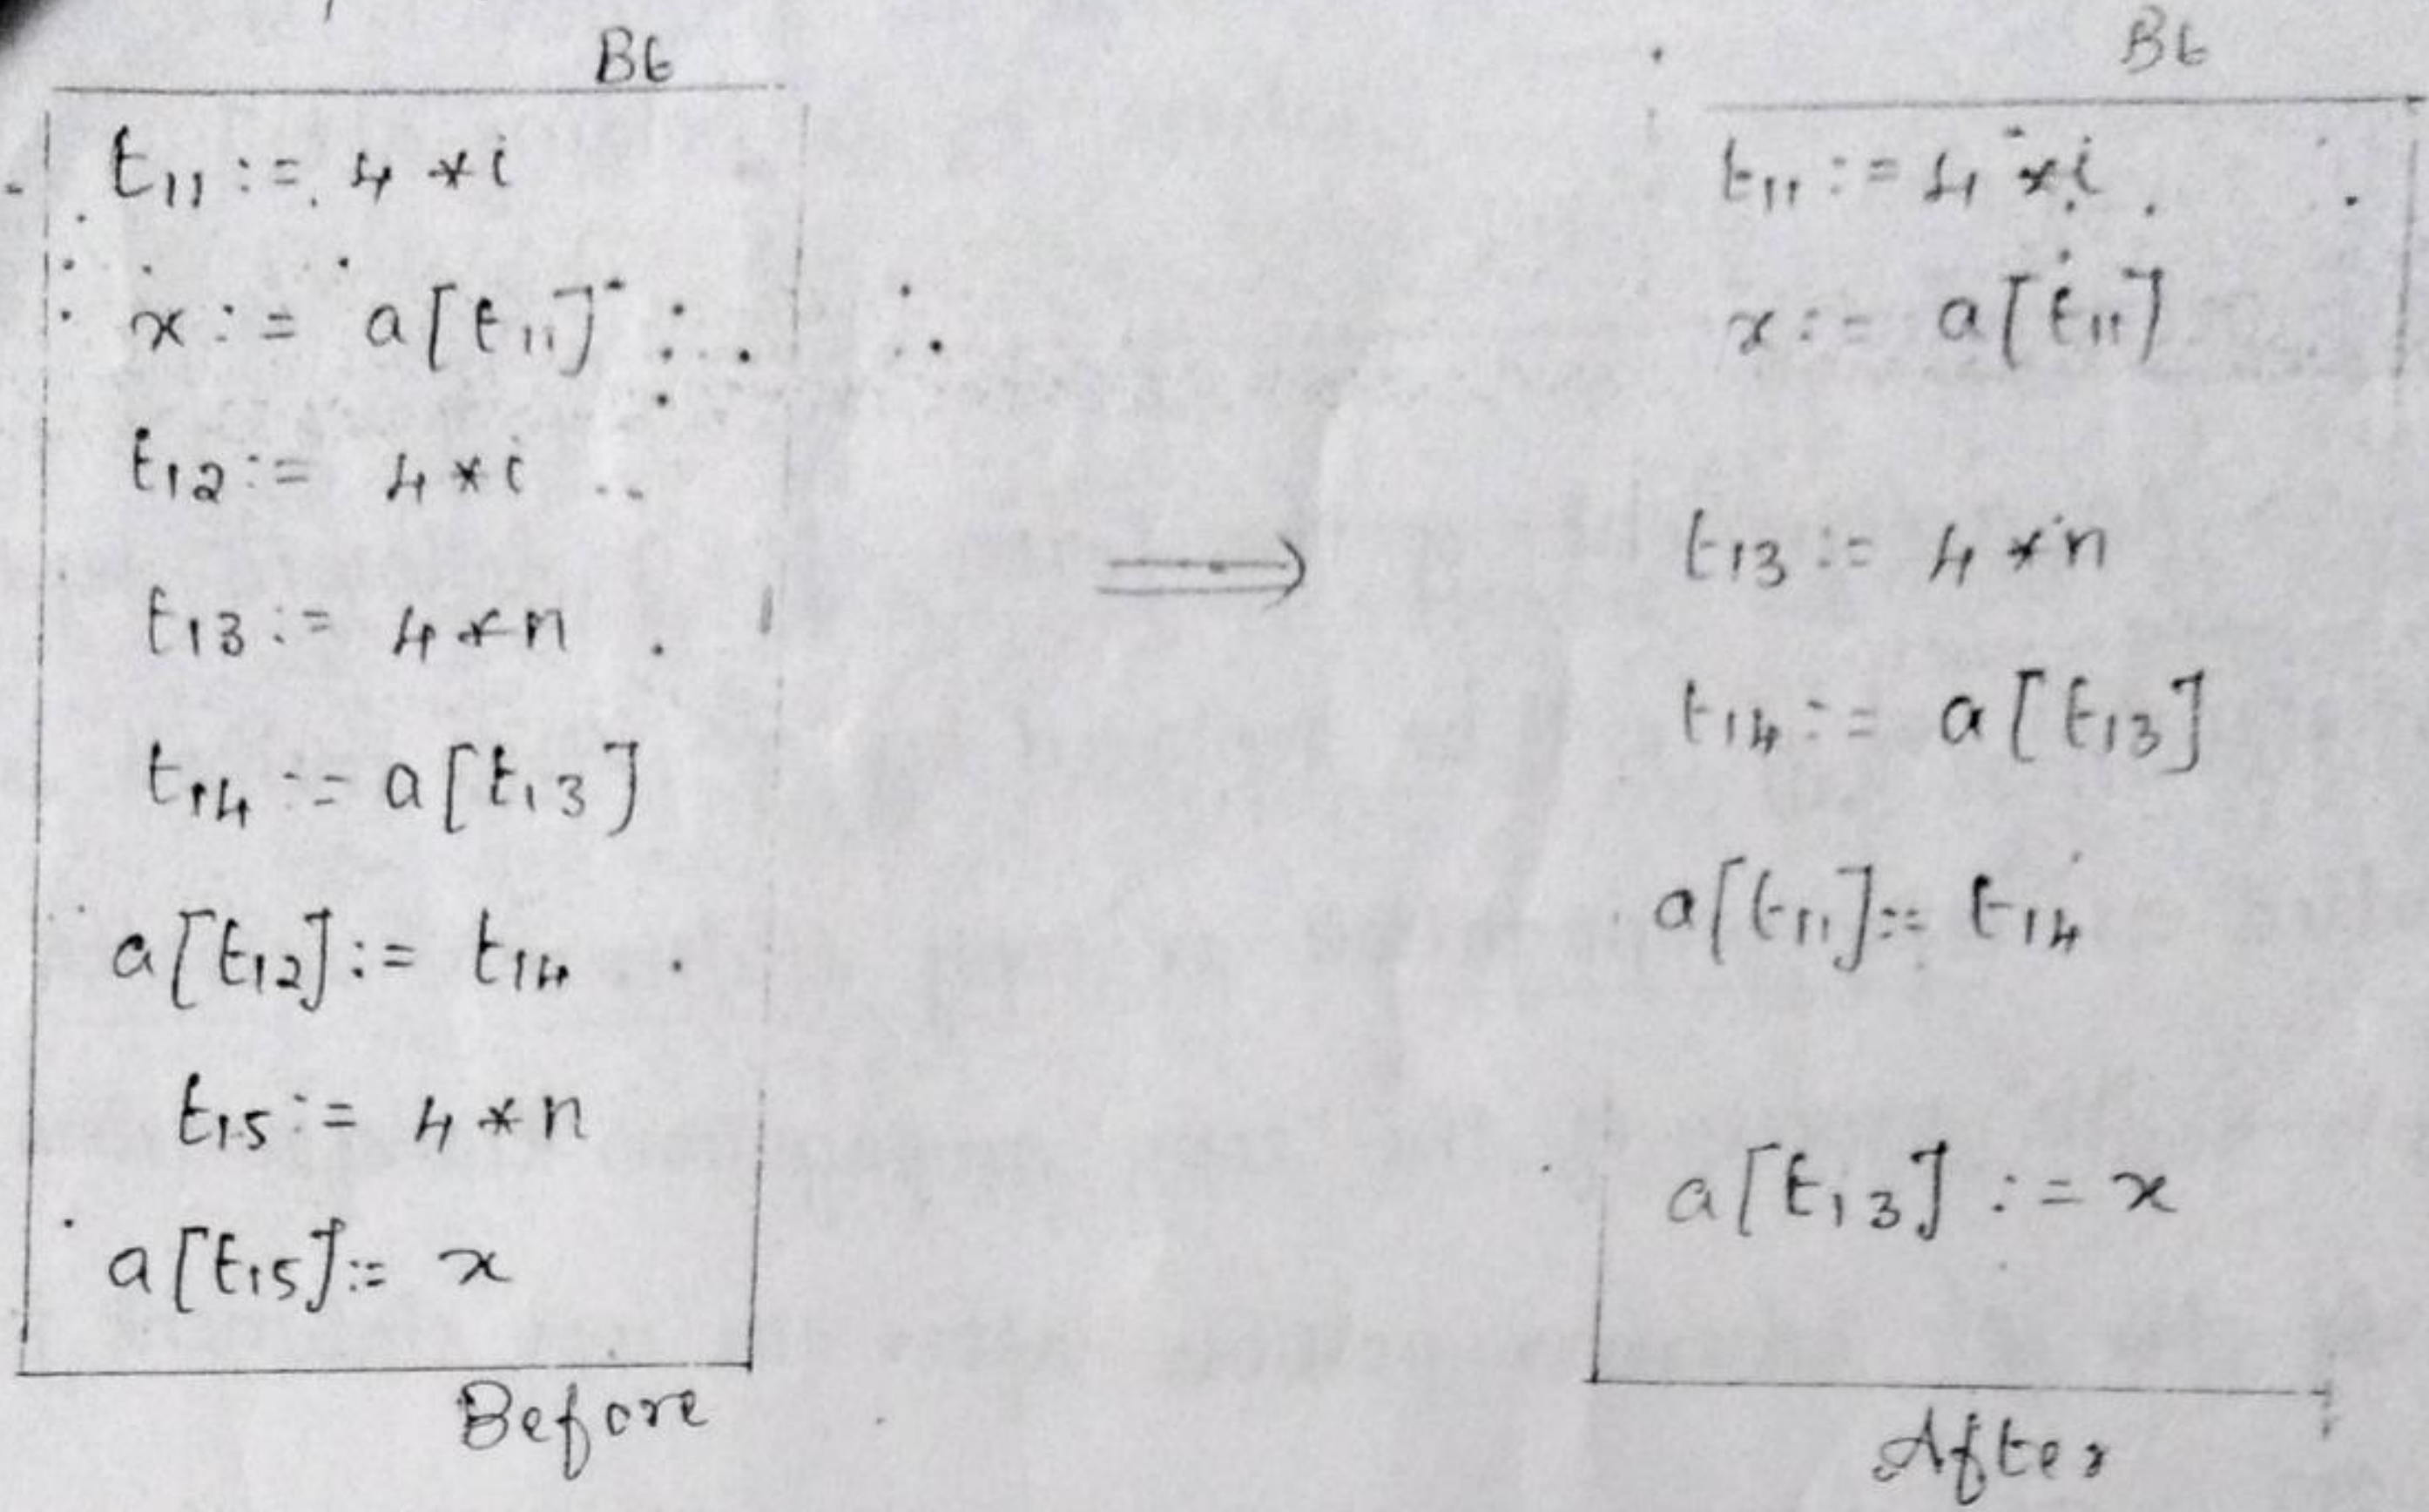 B6
t11 := 4 * i
x := a[t11]
t12 := 4 * i
t13 := 4 * n
t14 := a[t13]
a[t12] := t14
t15 := 4 * n
a[t15] := x
Before
⟹
B6
t11 := 4 * i
x := a[t11]
t13 := 4 * n
t14 := a[t13]
a[t11] := t14
a[t13] := x
After